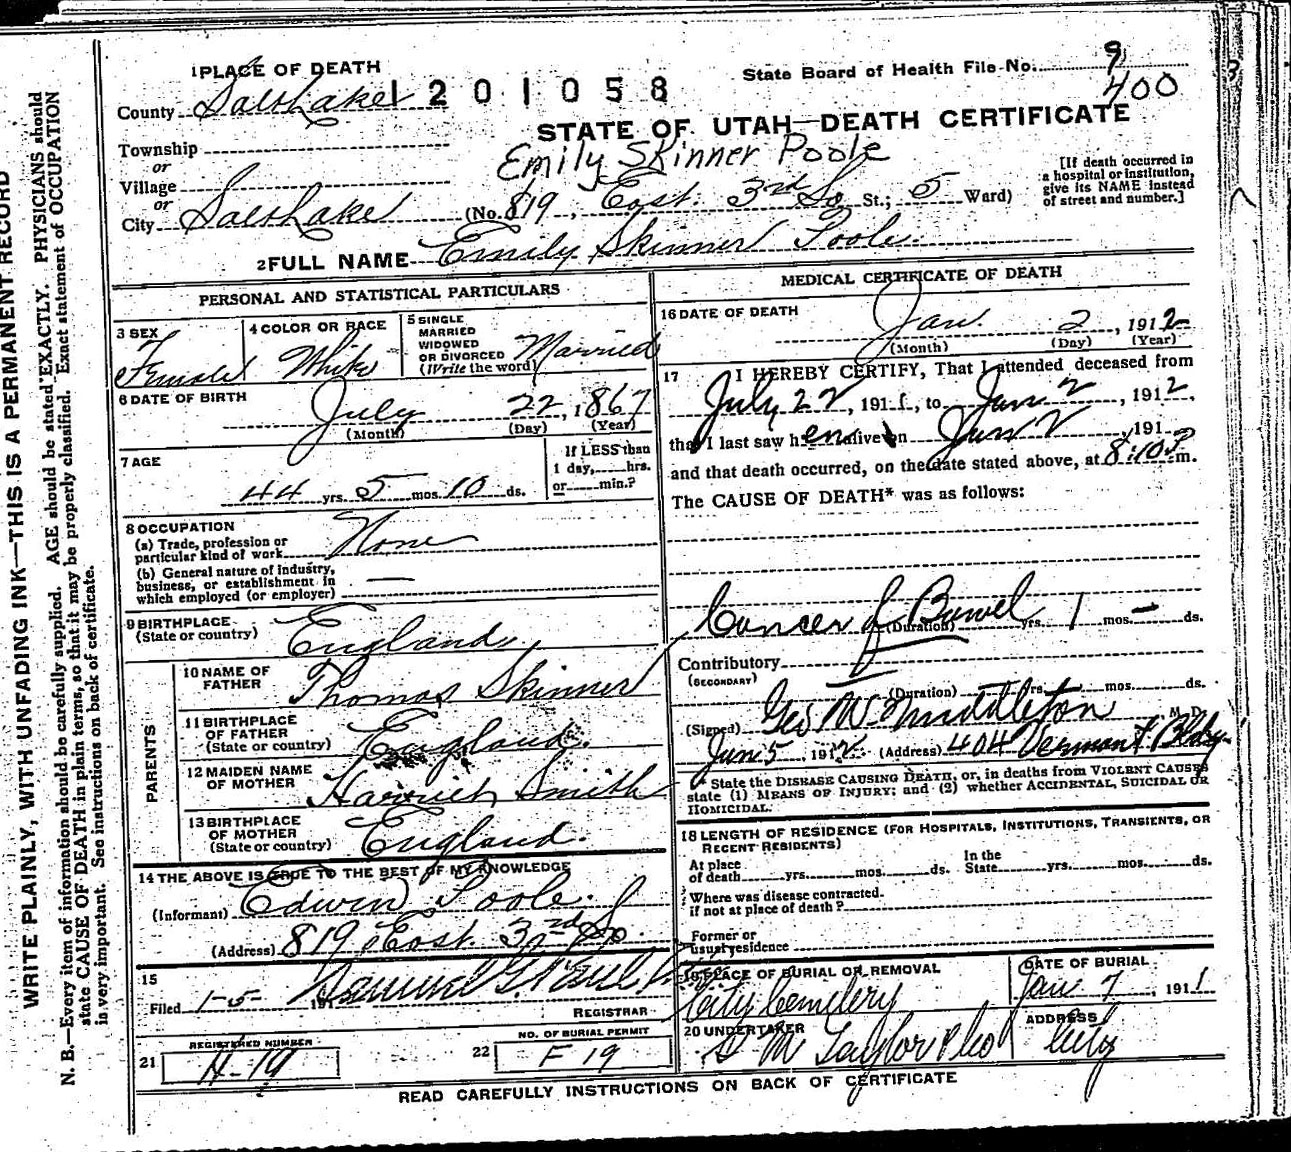 WRITE PLAINLY, WITH UNFADING INK—THIS IS A PERMANENT RECORD
N. B.—Every item of information should be carefully supplied. AGE should be stated EXACTLY. PHYSICIANS should
state CAUSE OF DEATH in plain terms, so that it may be properly classified. Exact statement of OCCUPATION
is very important. See instructions on back of certificate.
1 PLACE OF DEATH
State Board of Health File No. 9
400
County Salt Lake
1201058
STATE OF UTAH—DEATH CERTIFICATE
Township
or
Village
or
City Salt Lake
Emily Skinner Poole
(No. 819, East 3rd So St.; 5 Ward)
[If death occurred in
a hospital or institution,
give its NAME instead
of street and number.]
2 FULL NAME Emily Skinner Poole.
PERSONAL AND STATISTICAL PARTICULARS
3 SEX
Female
4 COLOR OR RACE
White
5 SINGLE
MARRIED
WIDOWED
OR DIVORCED
(Write the word)
Married
6 DATE OF BIRTH
July 22, 1867
(Month) (Day) (Year)
7 AGE
44 yrs. 5 mos. 10 ds.
If LESS than
1 day, hrs.
or min.?
8 OCCUPATION
(a) Trade, profession or
particular kind of work None
(b) General nature of industry,
business, or establishment in
which employed (or employer) —
9 BIRTHPLACE
(State or country) England
PARENTS
10 NAME OF
FATHER Thomas Skinner
11 BIRTHPLACE
OF FATHER
(State or country) England.
12 MAIDEN NAME
OF MOTHER Harriet Smith
13 BIRTHPLACE
OF MOTHER
(State or country) England.
14 THE ABOVE IS TRUE TO THE BEST OF MY KNOWLEDGE
(Informant) Edwin Poole.
(Address) 819 East 3rd So
15
Filed 1-5- 191 Samuel G. Paul
REGISTRAR
21 REGISTERED NUMBER
H-19
22 NO. OF BURIAL PERMIT
F 19
MEDICAL CERTIFICATE OF DEATH
16 DATE OF DEATH
Jan. 2, 1912
(Month) (Day) (Year)
17 I HEREBY CERTIFY, That I attended deceased from
July 22, 1911, to Jan 2, 1912,
that I last saw her alive on Jan 2, 191
and that death occurred, on the date stated above, at 8:10 P. m.
The CAUSE OF DEATH* was as follows:
Cancer of Bowel
(Duration) yrs. 1 mos. — ds.
Contributory
(SECONDARY)
(Duration) yrs. mos. ds.
(Signed) Geo W Middleton M. D.
Jan 5, 1912 (Address) 404 Vermont Bldg
* State the DISEASE CAUSING DEATH, or, in deaths from VIOLENT CAUSES
state (1) MEANS OF INJURY; and (2) whether ACCIDENTAL, SUICIDAL OR
HOMICIDAL.
18 LENGTH OF RESIDENCE (FOR HOSPITALS, INSTITUTIONS, TRANSIENTS, OR
RECENT RESIDENTS)
At place
of death yrs. mos. ds.
In the
State yrs. mos. ds.
Where was disease contracted.
if not at place of death?
Former or
usual residence
19 PLACE OF BURIAL OR REMOVAL
City Cemetery
DATE OF BURIAL
Jan 7, 1911
20 UNDERTAKER
S M Taylor & Co
ADDRESS
City
READ CAREFULLY INSTRUCTIONS ON BACK OF CERTIFICATE